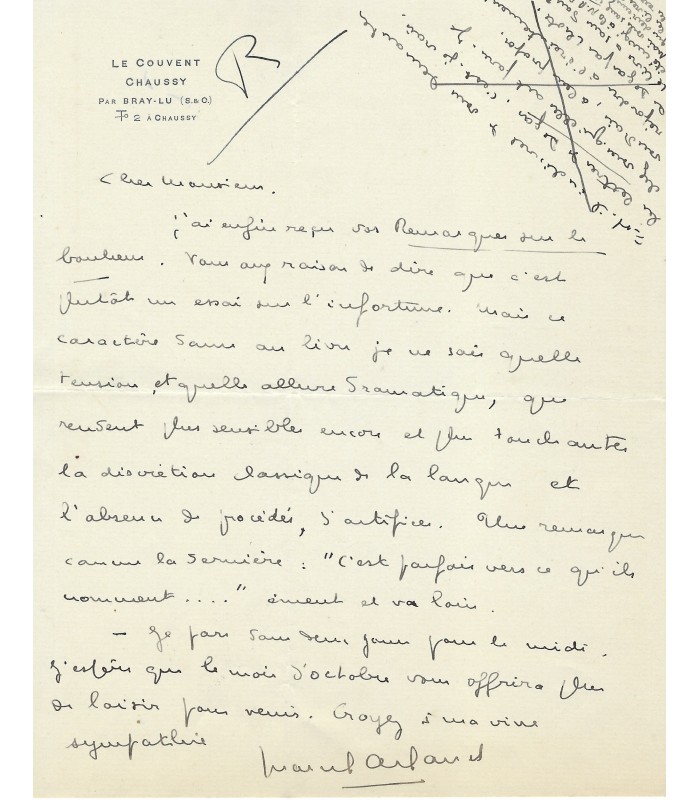 LE COUVENT
CHAUSSY
PAR BRAY-LU (S.&O.)
To 2 À CHAUSSY
R
Cher Monsieur.
J'ai enfin reçu vos Remarques sur le
bonheur. Vous avez raison de dire que c'est
plutôt un essai sur l'infortune. Mais ce
caractère donne au livre je ne sais quelle
tension et quelle allure dramatique, que
rendent plus sensibles encore et plus touchantes
la discrétion classique de la langue et
l'absence de procédés, d'artifices. Une remarque
comme la dernière : "C'est parfois vers ce qu'ils
nomment ...." émeut et va loin.
– Je pars dans deux jours pour le midi.
J'espère que le mois d'octobre vous offrira plus
de loisir pour venir. Croyez à ma vive
sympathie
Marcel Arland